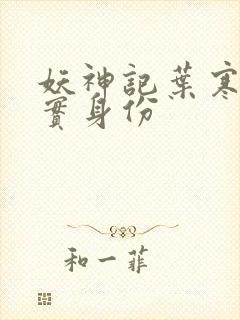 妖神記葉寒
實身份
和一菲